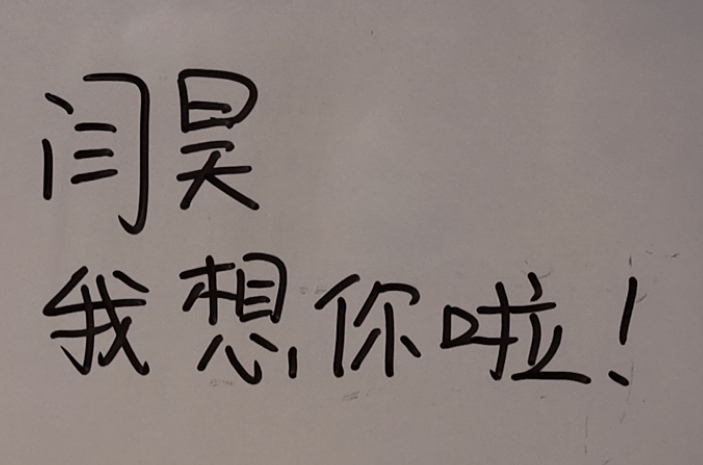 闫昊
我想你啦！